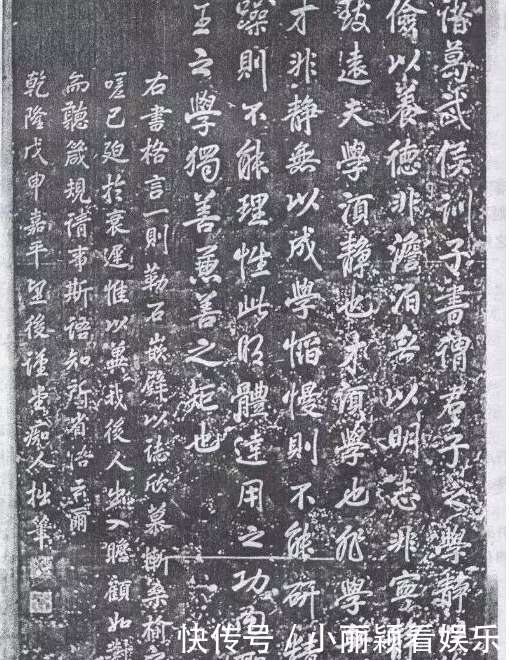 諸葛武侯訓子書謂君子之學靜
儉以養德非澹泊無以明志非寧
致遠夫學須靜也才須學也非學
才非靜無以成學慆慢則不能研精
躁則不能理性此明體達用之功
王之學獨善兼善之矩也
右書格言一則勒石嵌壁以誌欣慕慚桑榆之
嗟已迫於衰遲惟以冀我後人出入瞻顧如對
而聽箴規請事斯語知所省悟云爾
乾隆戊申嘉平望後謹堂痴人拙筆
快传号 / 小丽颖看娱乐